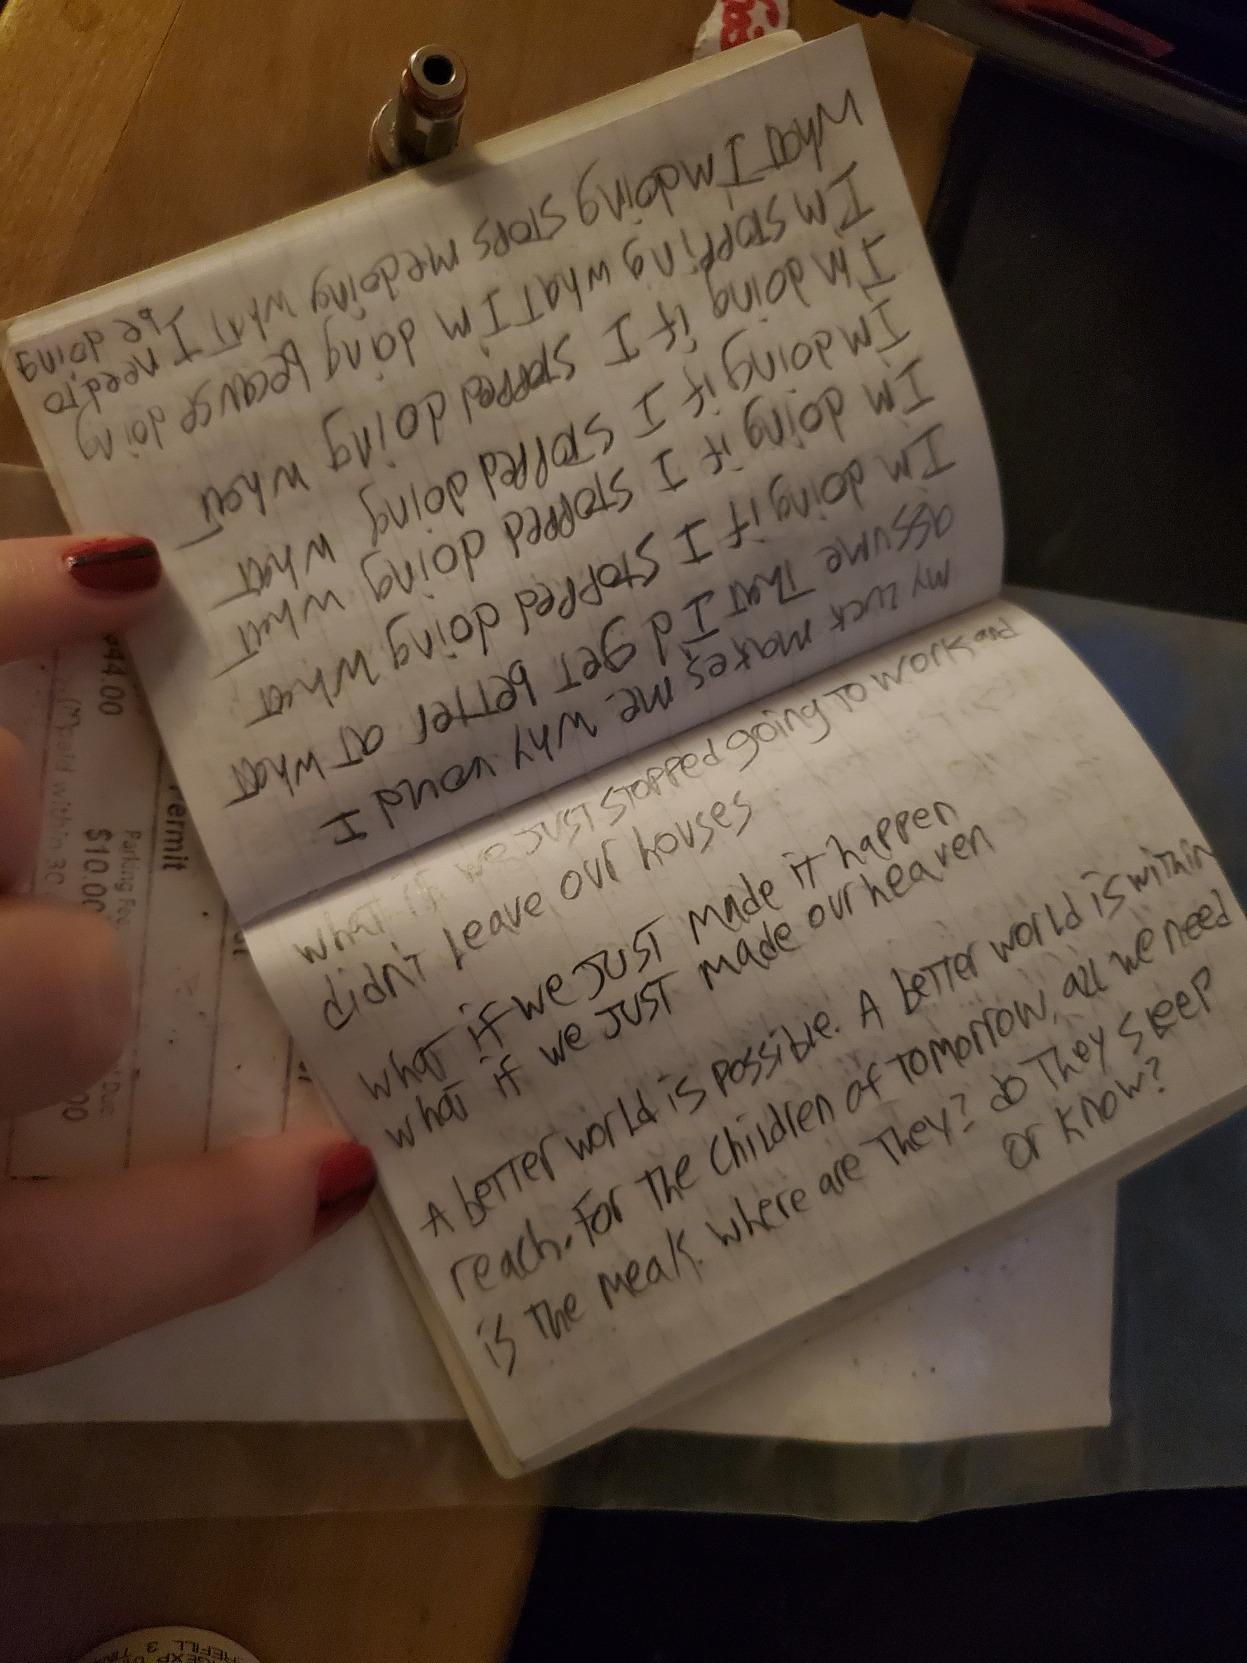 my luck makes me why would I
assume that I'd get better at what
I'm doing if I stopped doing what
I'm doing if I stopped doing what
Im doing if I stopped doing what
I'm doing if I stopped doing what
I'm stopping what I'm doing because doing
what I'm doing stops me doing what I need to
be doing
what if we just stopped going to work and
didn't leave our houses
what if we just made it happen
what if we just made our heaven
A better world is possible. A better world is within
reach. For the children of tomorrow, all we need
is the meak. where are they? do they sleep
or know?
ermit
Parking Fee
$10.00
paid within 30
44.00
Due
REFILL 3